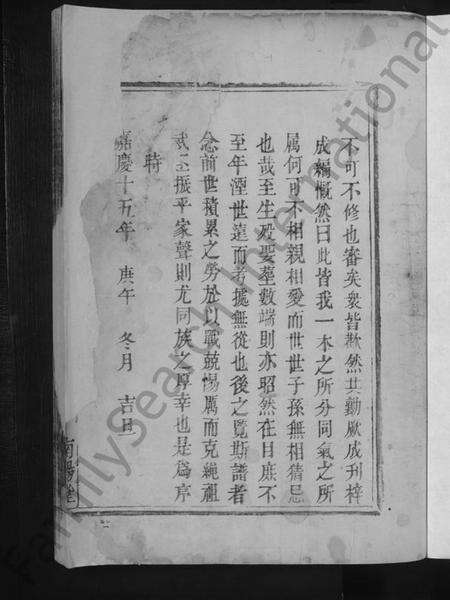 不可不修也審矣衆皆歡然共勷厥成刊梓
成編慨然曰此皆我一本之所分同氣之所
属何可不相親相愛而世世子孫無相猜忌
也哉至生殁娶塟數端則亦昭然在目庶不
至年湮世遠而考據無從也後之覽斯譜者
念前世積累之勞於以戰兢惕厲而克繩祖
武丕振乎家聲則尤同族之厚幸也是為序
時
嘉慶十五年 庚午 冬月 吉旦
南陽堂
FamilySearch International